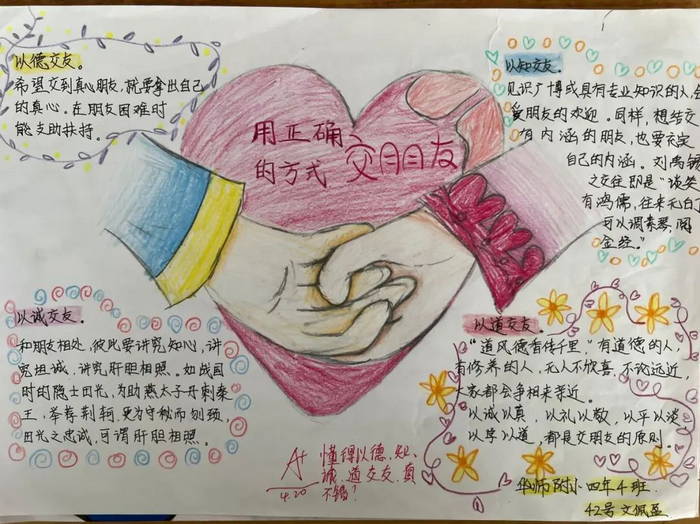 以德交友。
希望交到真心朋友,就要拿出自己
的真心。在朋友困难时
能支助扶持。
用正确
的方式 交朋友
以知交友。
见识广博或具有专业知识的人会
受朋友的欢迎。同样,想结交
有内涵的朋友,也要充实
自己的内涵。刘禹锡
之交往即是“谈笑
有鸿儒,往来无白丁
可以调素琴,阅
金经。”
以诚交友。
和朋友相处,彼此要讲究知心,讲
究坦诚,讲究肝胆相照。如战国
时的隐士田光,为助燕太子丹刺秦
王,举荐荆轲,更为守秘而刎颈,
田光之忠诚,可谓肝胆相照。
以道交友。
“道风德香传千里,”有道德的人,
有修养的人,无人不欣喜,不论远近,
大家都会争相来亲近。
以诚以真,以礼以敬,以平以淡
以学以道,都是交朋友的原则。
A+
4.20
懂得以德、知、
诚、道交友,真
不错!
华师附小四年4班
42号 文佩